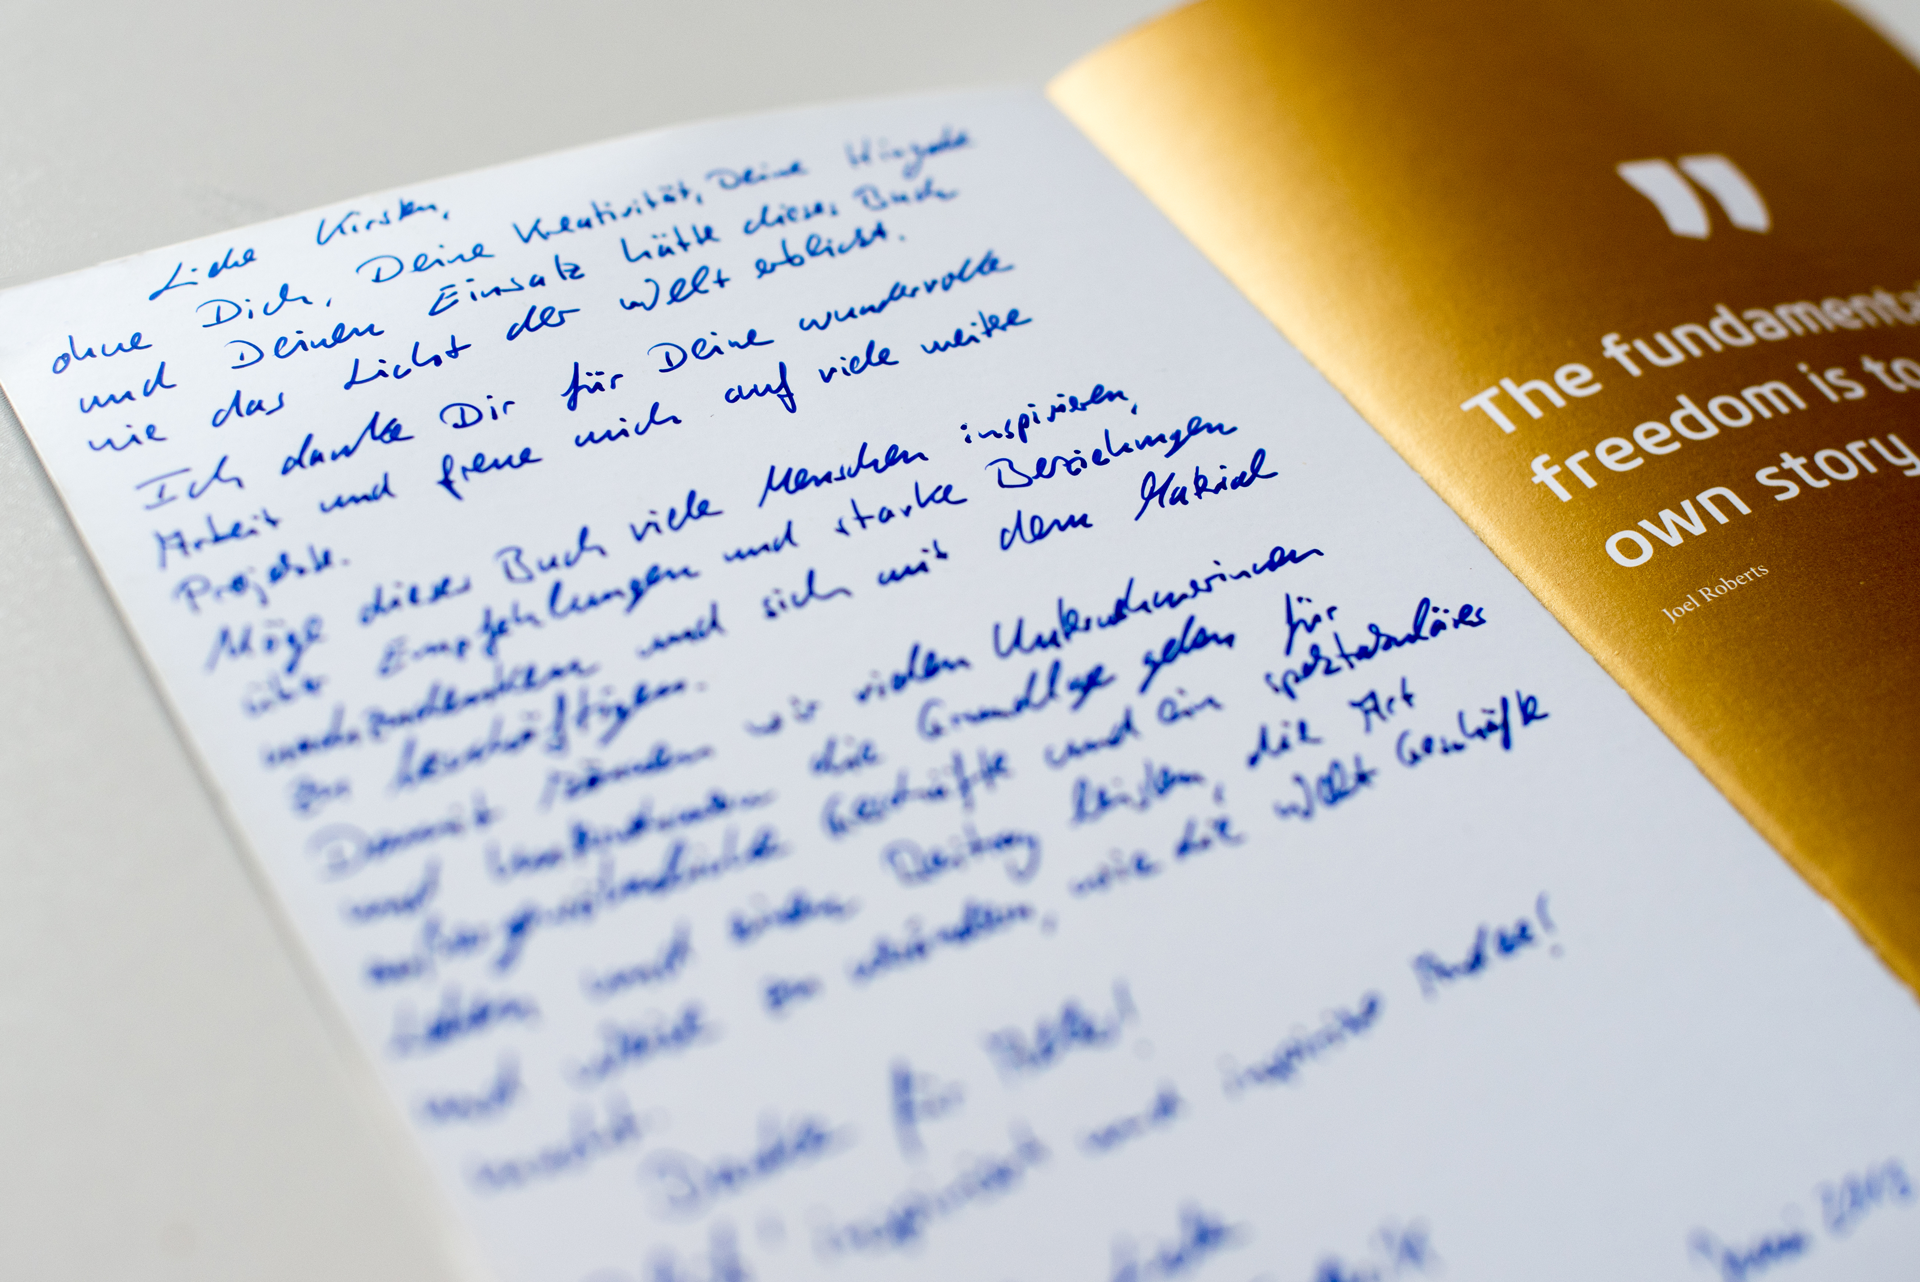 Liebe Kirsten,
ohne Dich, Deine Kreativität, Deine Hingabe
und Deinen Einsatz hätte dieses Buch
nie das Licht der Welt erblickt.
Ich danke Dir für Deine wundervolle
Arbeit und freue mich auf viele weitere
Projekte.
Möge dieses Buch viele Menschen inspirieren,
über Empfehlungen und starke Beziehungen
nachzudenken und sich mit dem Material
zu beschäftigen.
Damit können wir vielen Unternehmerinnen
und die Grundlage geben für
außergewöhnliche Geschäfte und ein spektakuläres
Leben und einen Beitrag leisten, die Art
und Weise zu verändern, wie die Welt Geschäfte
macht.
Danke für Alles!
inspiriert und inspirierte Andere!
Juni 2018
"
The fundamental
freedom is to
own story
Joel Roberts